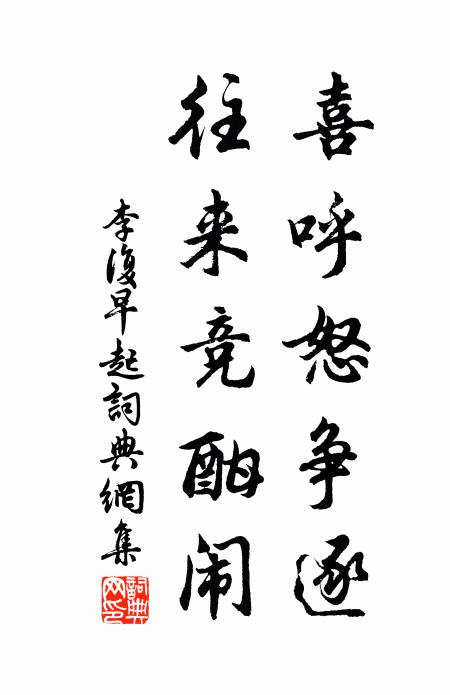 喜呼怒争逐
往来竞酣闹
李復早起詞典網集
詞典
网印